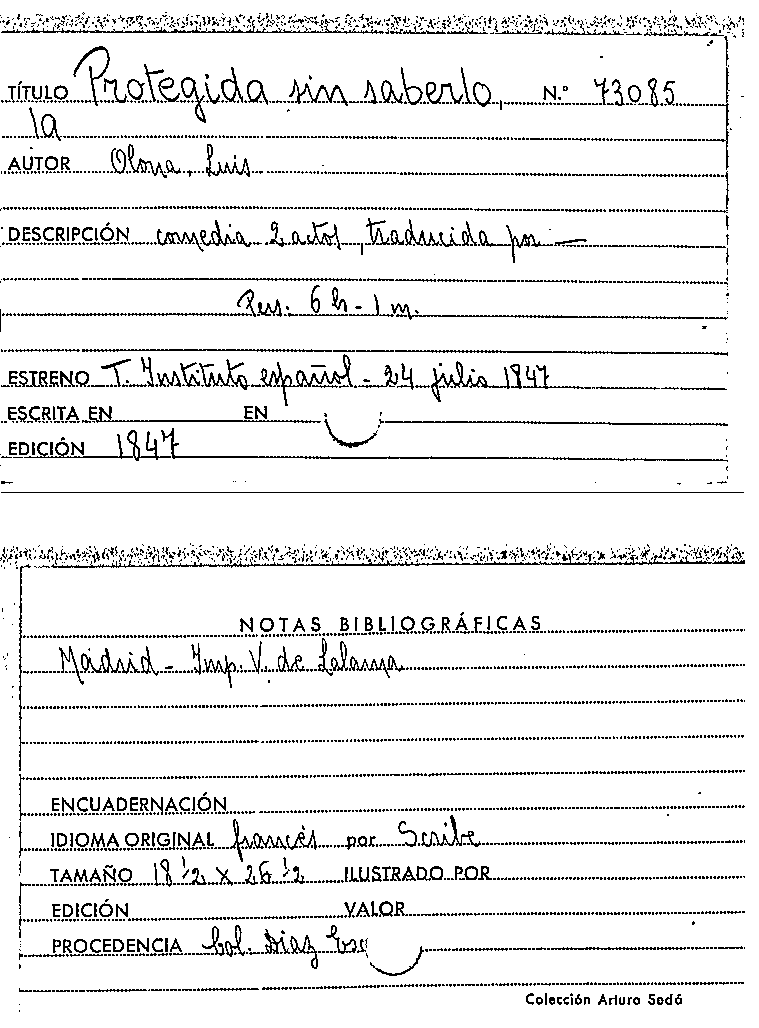 TÍTULO Protegida sin saberlo, N.º 73085
la
AUTOR Olona, Luis
DESCRIPCIÓN comedia 2 actos, traducida por —
Pers. 6 h - 1 m.
ESTRENO T. Instituto español - 24 julio 1847
ESCRITA EN EN
EDICIÓN 1847
NOTAS BIBLIOGRÁFICAS
Madrid - Imp. V. de Lalama
ENCUADERNACIÓN
IDIOMA ORIGINAL francés por Scribe
TAMAÑO 18 1/2 X 26 1/2 ILUSTRADO POR
EDICIÓN VALOR
PROCEDENCIA Col. Díaz Esc
Colección Arturo Sedó